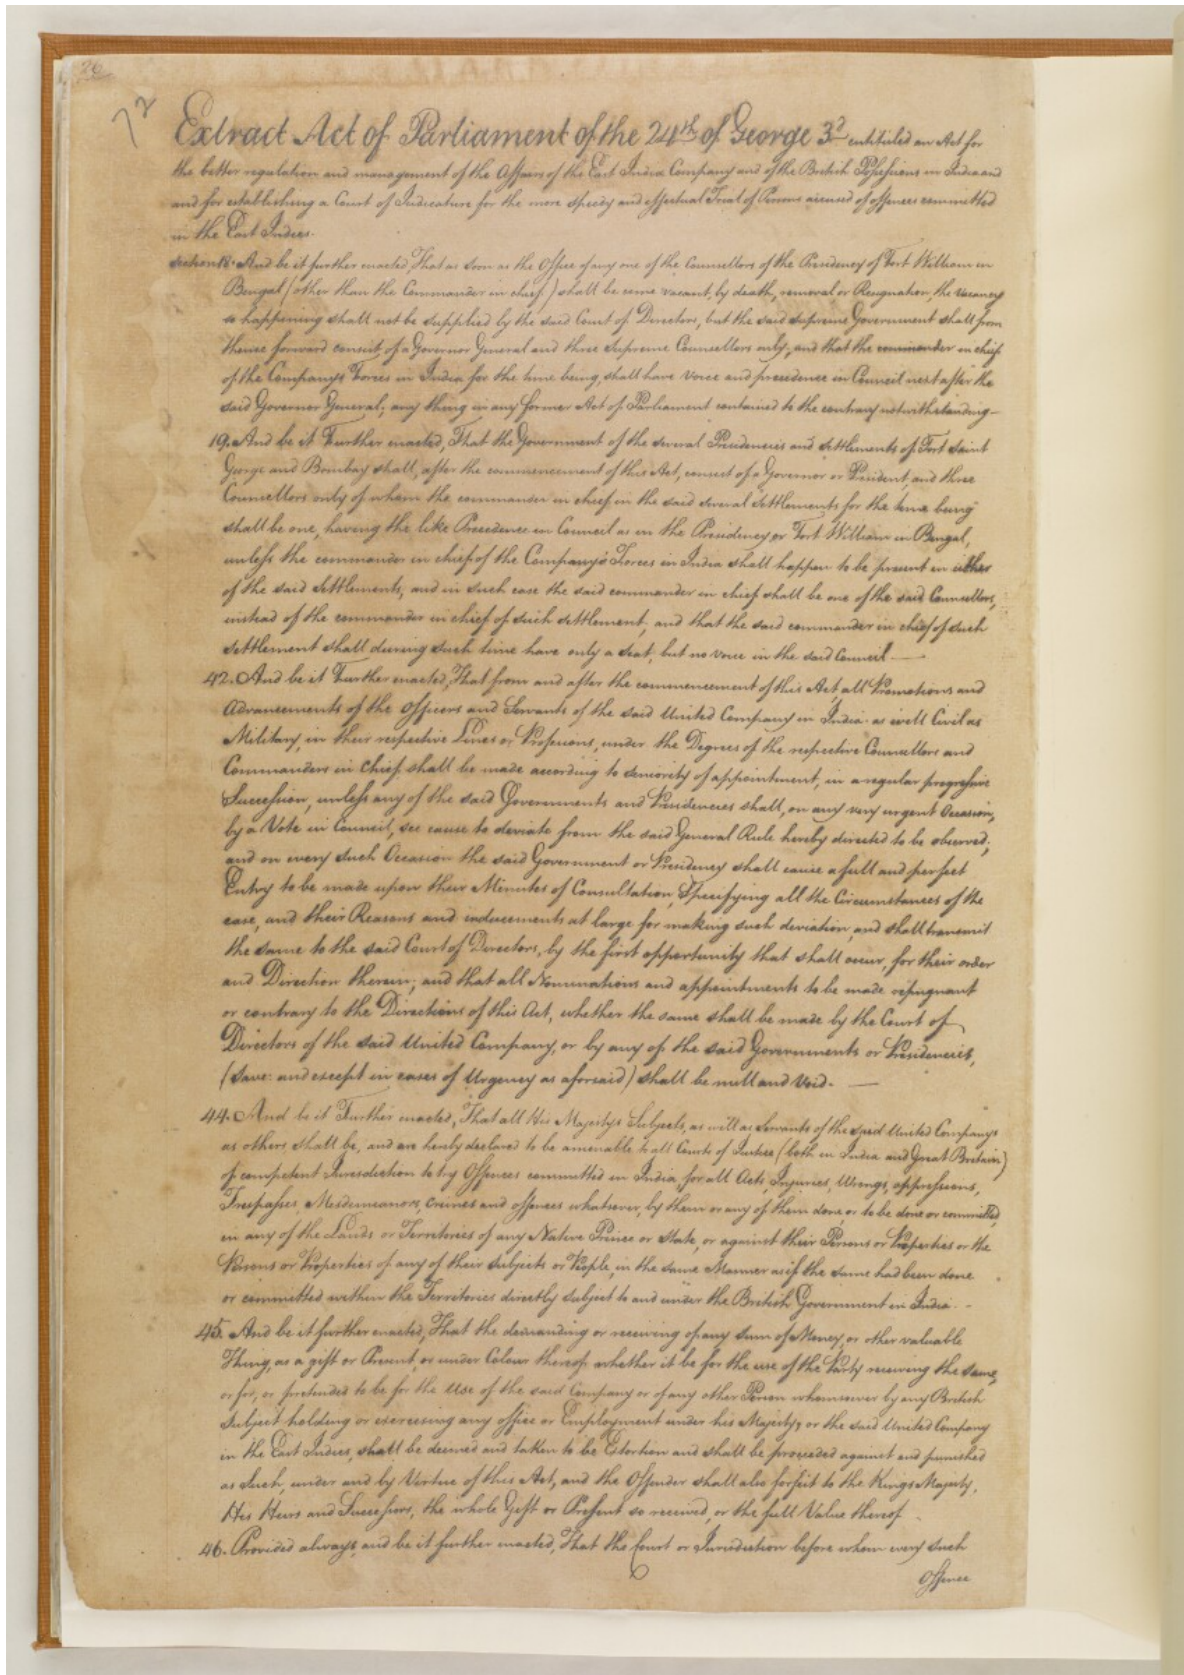 26
72
Extract Act of Parliament of the 24th of George 3d entituled an Act for
the better regulation and management of the Affairs of the East India Company and of the British Possessions in India and
and for establishing a Court of Judicature for the more speedy and effectual Trial of Persons accused of offences committed
in the East Indies.
Section 18. And be it further enacted That as soon as the Office of any one of the Counsellors of the Presidency of Fort William in
Bengal (other than the Commander in chief) shall be come vacant, by death, removal or Resignation, the vacancy
so happening shall not be supplied by the said Court of Directors, but the said supreme Government shall from
thence forward consist of a Governor General and three Supreme Counsellors only, and that the commander in chief
of the Companys Forces in India for the time being, shall have voice and precedence in Council next after the
said Governor General; any thing in any former Act of Parliament contained to the contrary notwithstanding-
19. And be it Further enacted, That the Government of the several Presidencies and Settlements of Fort Saint
George and Bombay shall, after the commencement of this Act, consist of a Governor or President, and three
Councellors only of whom the commander in chief in the said several Settlements for the time being
shall be one, having the like Precedence in Council as in the Presidency or Fort William in Bengal,
unless the commander in chief of the Company's Forces in India shall happen to be present in either
of the said Settlements, and in such case the said commander in chief shall be one of the said Counsellors,
instead of the commander in chief of such settlement, and that the said commander in chief of such
settlement shall during such time have only a Seat, but no voice in the said Council.—
42. And be it Further enacted, That from and after the commencement of this Act, all Promotions and
Advancements of the Officers and Servants of the said United Company in India as well Civil as
Military, in their respective Lines or Professions, under the Degrees of the respective Councellors and
Commanders in Chief shall be made according to seniority of appointment, in a regular progressive
Succession, unless any of the said Governments and Presidencies shall, on any very urgent Occasion,
by a Vote in Council, see cause to deviate from the said General Rule hereby directed to be observed;
and on every such Occasion the said Government or Presidency shall cause a full and perfect
Entry to be made upon their Minutes of Consultation, Specifying all the Circumstances of the
case, and their Reasons and inducements at large for making such deviation, and shall transmit
the same to the said Court of Directors, by the first opportunity that shall occur, for their order
and Direction therein; and that all Nominations and appointments to be made repugnant
or contrary to the Directions of this Act, whether the same shall be made by the Court of
Directors of the said United Company, or by any of the said Governments or Presidencies,
(save: and except in cases of Urgency as aforsaid) shall be null and void. —
44. And be it Further enacted, That all His Majestys Subjects, as will as Servants of the said United Companys
as others shall be, and are hereby declared to be amenable to all Courts of Justice (both in India and Great Britain)
of competent Jurisdiction to try Offences committed in India, for all Acts, Injuries, Wrongs, oppressions,
Trespasses, Misdemeanors, crimes and offences whatsoever, by them or any of them done, or to be done or committed,
in any of the Lands or Territories of any Native Prince or State, or against their Persons or Properties or the
Persons or Properties of any of their subjects or People, in the same Manner as if the same had been done
or committed within the Territories directly subject to and under the British Government in India. -
45. And be it further enacted, That the demanding or receiving of any sum of Money, or other valuable
Thing, as a gift or Present, or under Colour thereof whether it be for the use of the Party receiving the same,
or for, or pretended to be for the Use of the said Company or of any other Person whomsoever by any British
Subject holding or exercising any office or Employment under his Majesty, or the said United Company
in the East Indies, shall be deemed and taken to be Extortion and shall be proceeded against and punished
as such, under and by Virtue of this Act, and the Offender shall also forfeit to the Kings Majesty,
His Heirs and Successors, the whole Gift or Present so received, or the full Value thereof
46. Provided always, and be it further enacted, That the Court or Jurisdiction before whom every such
Offence